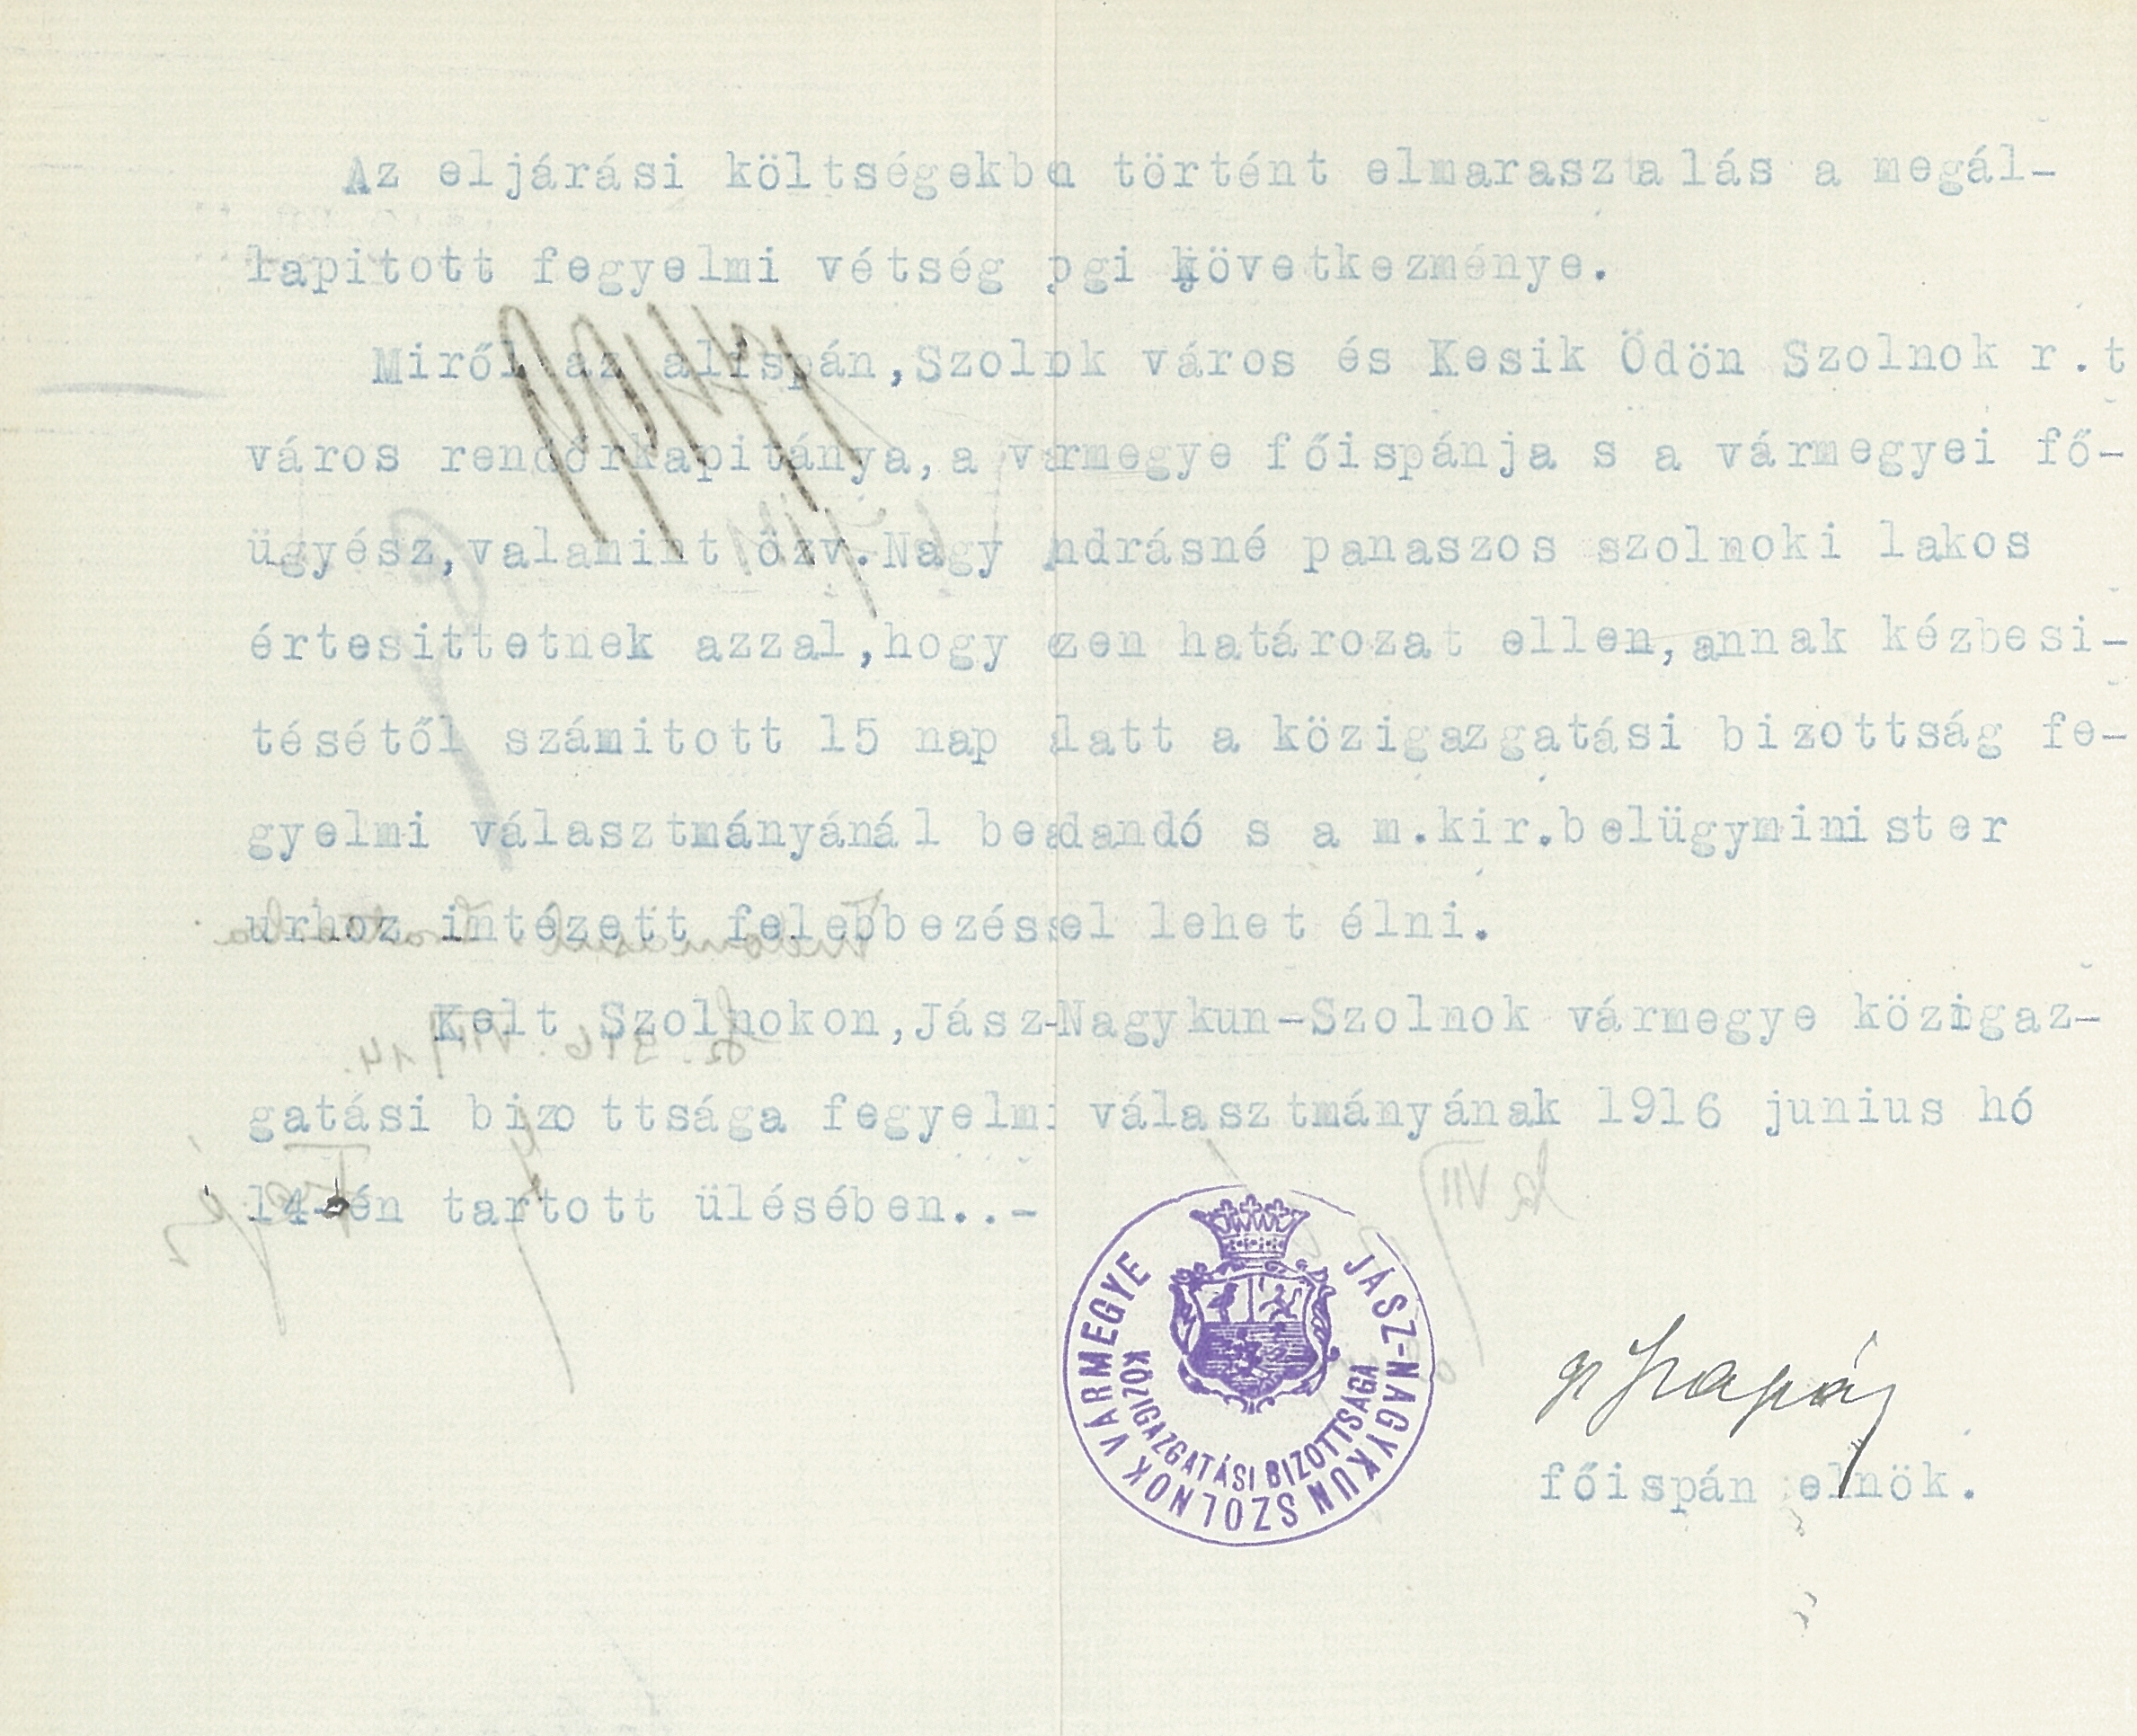 Az eljárási költségekbn történt elmarasztalás a megál-
lapitott fegyelmi vétség ogi következménye.
Miről az alispán,Szolnok város és Kesik Ödön Szolnok r.t
város rendőrkapitánya,a vármegye főispánja s a vármegyei fő-
ügyész,valamint özv.Nagy Andrásné panaszos szolnoki lakos
értesittetnek azzal,hogy ezen határozat ellen,annak kézbesi-
tésétől számitott 15 nap alatt a közigazgatási bizottság fe-
gyelmi választmányánál beadandó s a m.kir.belügyminister
urhoz intézett felebbezéssel lehet élni.
Kelt Szolnokon,Jász-Nagykun-Szolnok vármegye közigaz-
gatási bizottsága fegyelmi választmányának 1916 junius hó
14-én tartott ülésében..-
JÁSZ-NAGYKUN SZOLNOK VÁRMEGYE
KÖZIGAZGATÁSI BIZOTTSÁGA
főispán elnök.